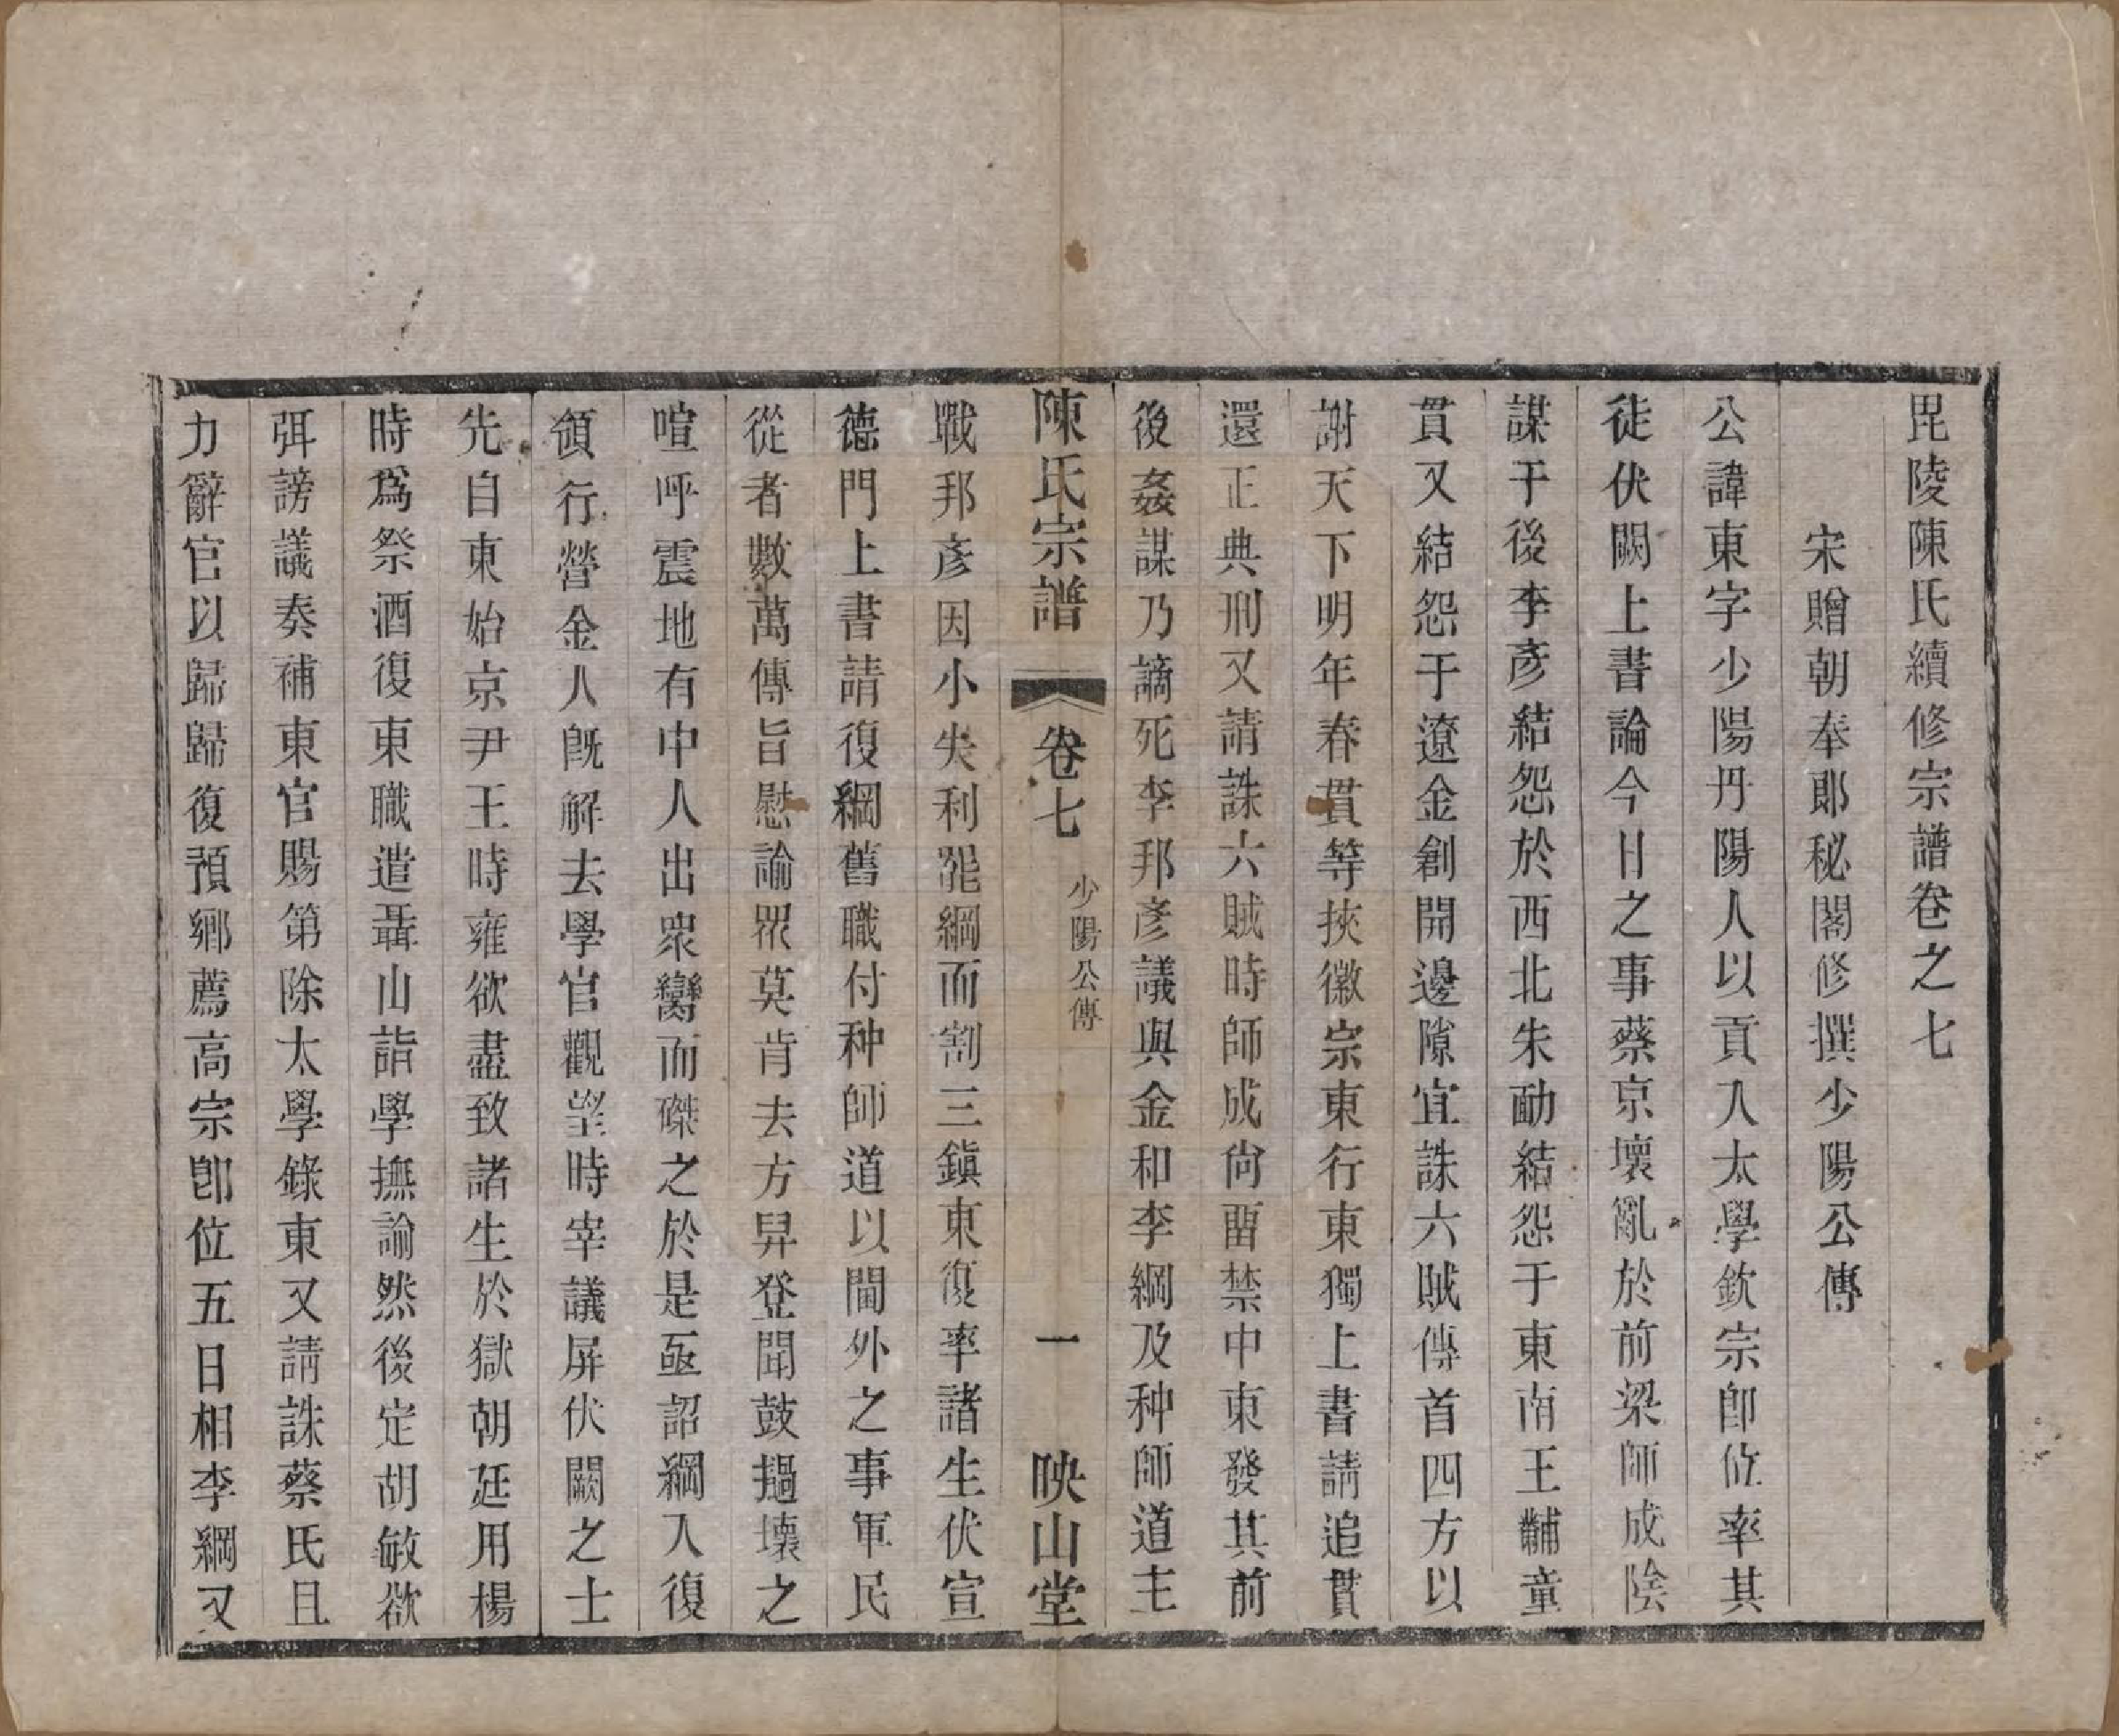 毘陵陳氏續修宗譜卷之七
宋贈朝奉郞秘閣修撰少陽公傳
公諱東字少陽丹陽人以貢入太學欽宗卽位率其
徒伏闕上書論今日之事蔡京壞亂於前梁師成陰
謀于後李彥結怨於西北朱勔結怨于東南王黼童
貫又結怨于遼金創開邊隙宜誅六賊傳首四方以
謝天下明年春貫等挾徽宗東行東獨上書請追貫
還正典刑又請誅六賊時師成尙畱禁中東發其前
後姦謀乃謫死李邦彥議與金和李綱及种師道主
陳氏宗譜 卷七 少陽公傳 一 映山堂
戰邦彥因小失利罷綱而割三鎭東復率諸生伏宣
德門上書請復綱舊職付种師道以閫外之事軍民
從者數萬傳旨慰諭眾莫肯去方舁登聞鼓撾壞之
喧呼震地有中人出衆臠而磔之於是亟詔綱入復
領行營金人旣解去學官觀望時宰議屏伏闕之士
先自東始京尹王時雍欲盡致諸生於獄朝廷用楊
時爲祭酒復東職遣聶山詣學撫諭然後定胡敏欲
弭謗議奏補東官賜第除太學錄東又請誅蔡氏且
力辭官以歸歸復預鄉薦高宗卽位五日相李綱又